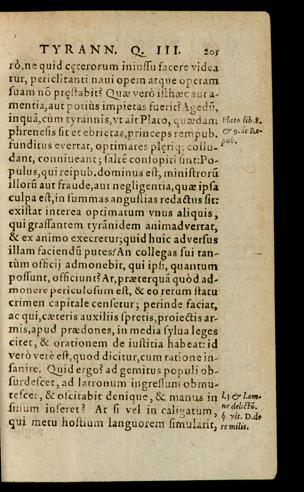 TYRANN. Q. III. 205
rò, ne quid cęterorum iniussu facere videa
tur, periclitanti naui opem atque operam
suam nō pręstabit? Quæ verò isthæc aut a-
mentia, aut potiùs impietas fuerit? Agedū,
inquā, cùm tyrannis, vt ait Plato, quædam
Plato lib. 8.
phrenesis sit et ebrietas, princeps rempub.
& 9. de Re-
funditus evertat, optimates plęriq; collu-
pub.
dant, conniueant; saltē consopiti sint: Po-
pulus, qui reipub. dominus est, ministrorū
illorū aut fraude, aut negligentia, quæ ipsa
culpa est, in summas angustias redactus sit:
existat interea optimatum vnus aliquis,
qui grassantem tyrānidem animadvertat,
& ex animo execretur; quid huic adversus
illam faciendū putes? An collegas sui tan-
tùm officij admonebit, qui ipsi, quantum
possunt, officiunt? At, præterquā quòd ad-
monere periculosum est, & eo rerum statu
crimen capitale censetur; perinde faciat,
ac qui, cæteris auxiliis spretis, proiectis ar-
mis, apud prædones, in media sylua leges
citet, & orationem de iustitia habeat: id
verò verè est, quod dicitur, cum ratione in-
sanire. Quid ergo? ad gemitus populi ob-
surdescet, ad latronum ingressum obmu-
tescet, & oscitabit denique, & manus in
L. 3 & Lom-
sinum inseret? At si vel in caligatum,
ne delictū.
qui metu hostium languorem simularit,
§. vlt. D. de
re milit.